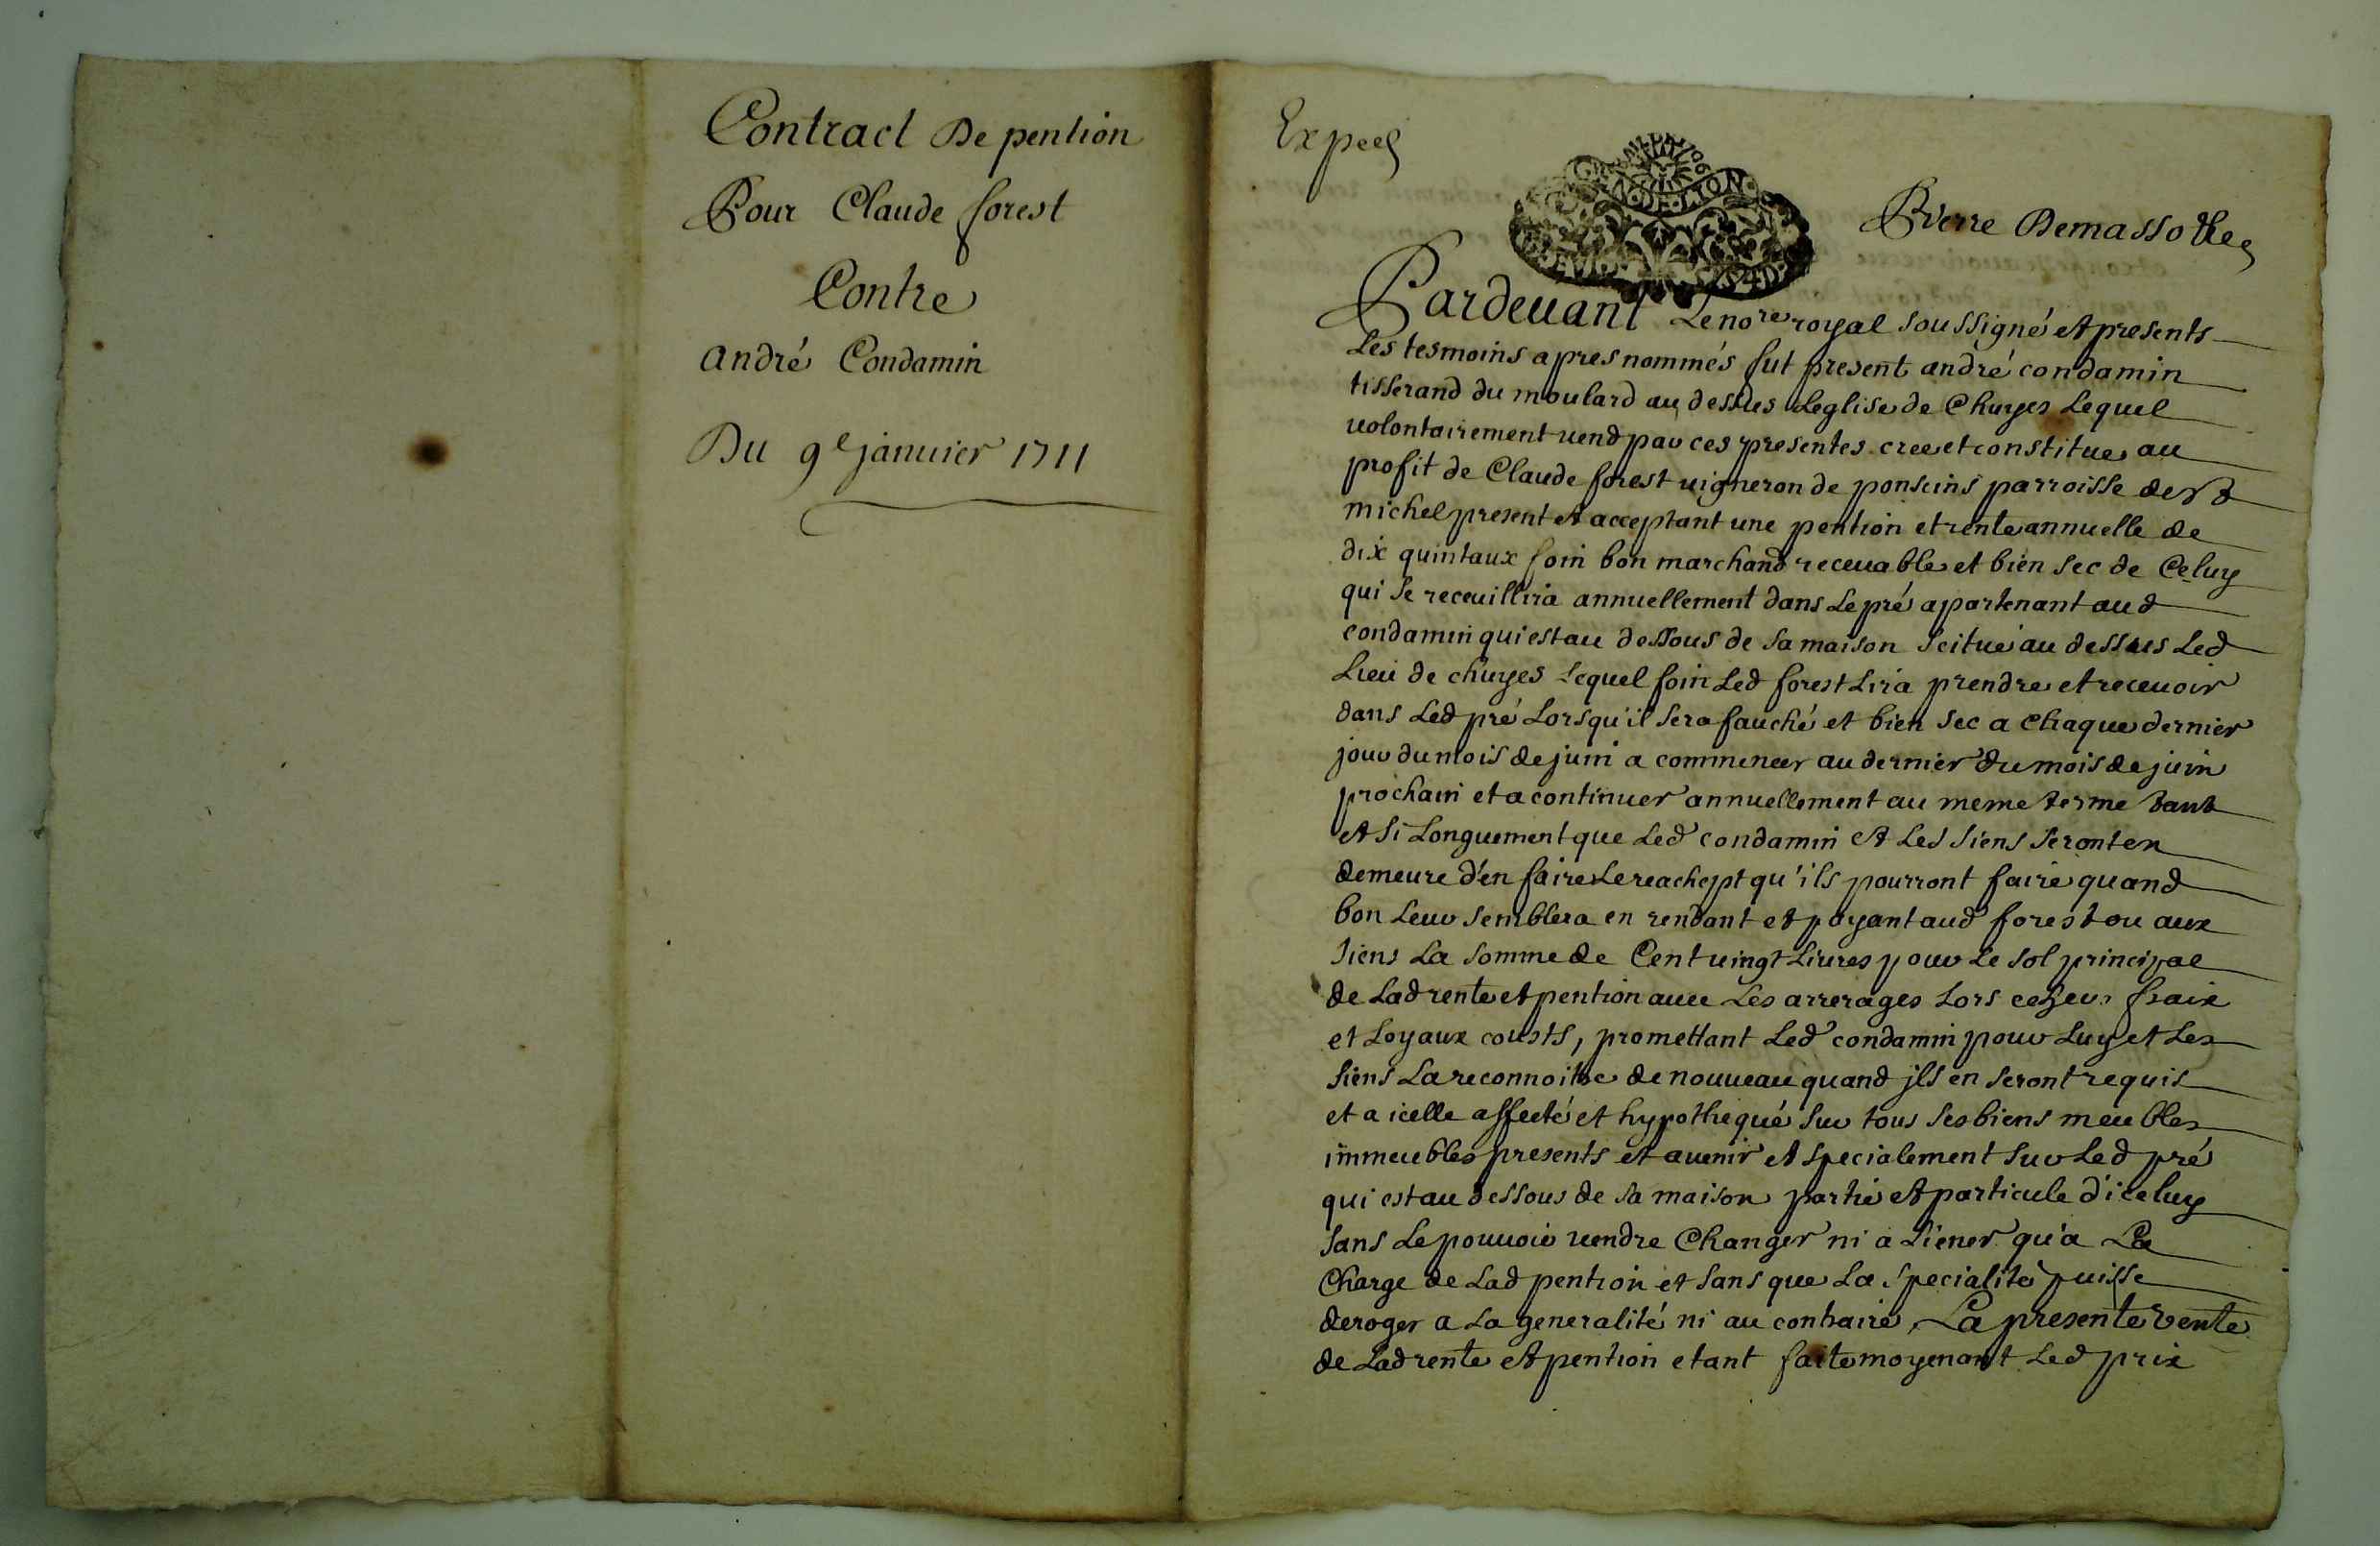 Contract De pention
Pour Claude forest
Contre
andré Condamin
Du 9e januier 1711
Pierre Demasso
Pardeuant Le nore royal soussigné et presents
Les tesmoins apres nommés fut present andré condamin
tisserand du moulard au dessues Leglise de Chuyes Lequel
uolontairement uend par ces presentes cree et constitue au
profit de Claude forest uigneron de ponsuins parroisse de st
michel present et acceptant une pention et rente annuelle de
dix quintaux foin bon marchand receuable et bien sec de Celuy
qui se receuillira annuellement dans Le pré apartenant aud
condamin qui est au dessous de sa maison scitué au dessues Led
Lieu de chuyes Lequel foin Led forest Lira prendre et receuoir
dans Led pré Lorsqu'il sera fauché et bien sec a Chaque dernier
jour du mois de juin a commencer au dernier du mois de juin
prochain et a continuer annuellement au meme terme tant
et si Longuement que Led condamin et Les siens seront en
demeure d'en faire Le reachept qu'ils pourront faire quand
bon Leur semblera en rendant et payant aud forest ou aux
siens La somme de Cent uingt Liures pour Le sol principal
de Lad rente et pention auec Les arrerages Lors fraix
et Loyaux cousts, promettant Led condamin pour Luy et Les
siens La reconnoitre de nouueau quand jls en seront requis
et a icelle affecté et hypothequé sur tous ses biens meubles
immeubles presents et auenir et specialement sur Led pré
qui est au dessous de sa maison partie et particule d'iceluy
sans Le pouuoir uendre Changer ni aliener qu'a La
Charge de Lad pention et sans que La specialité puisse
deroger a La generalité ni au contraire, La presente vente
de Lad rente et pention etant faite moyenant Led prix